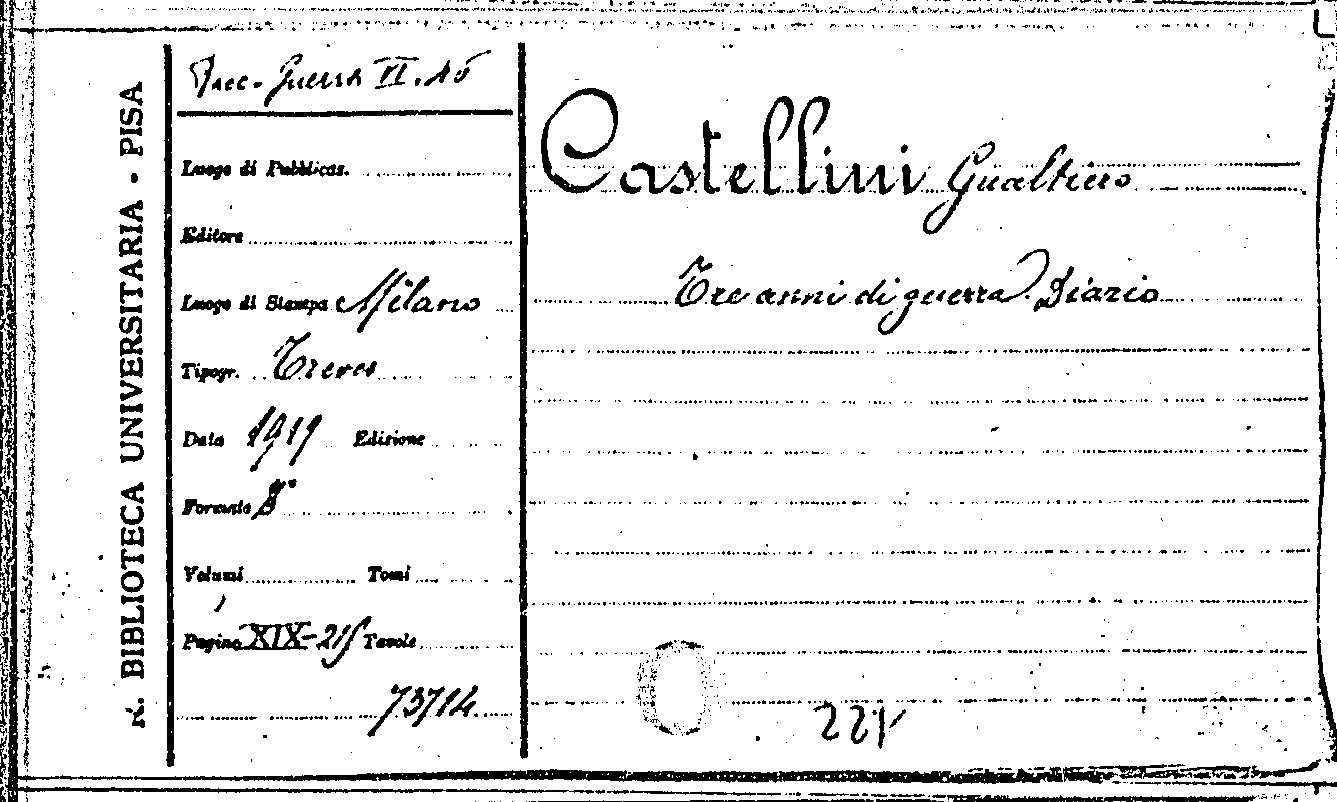 R. BIBLIOTECA UNIVERSITARIA - PISA
Racc. Guerra VI. 15
Luogo di Pubblicaz.
Editore
Luogo di Stampa Milano
Tipogr. Treves
Data 1919 Edizione
Formato 8°
Volumi Tomi
Pagine XIX-215 Tavole
73714
Castellini Gualtiero
Tre anni di guerra. Diario